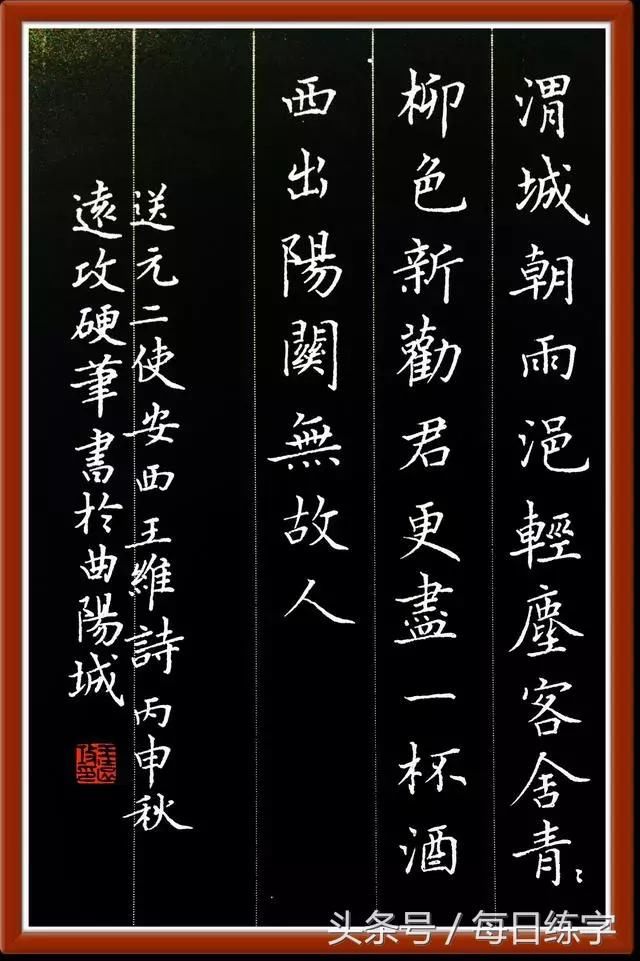 渭城朝雨浥輕塵客舍青〻
柳色新勸君更盡一杯酒
西出陽關無故人
送元二使安西王維詩丙申秋
遠攻硬筆書於曲陽城
头条号 / 每日练字